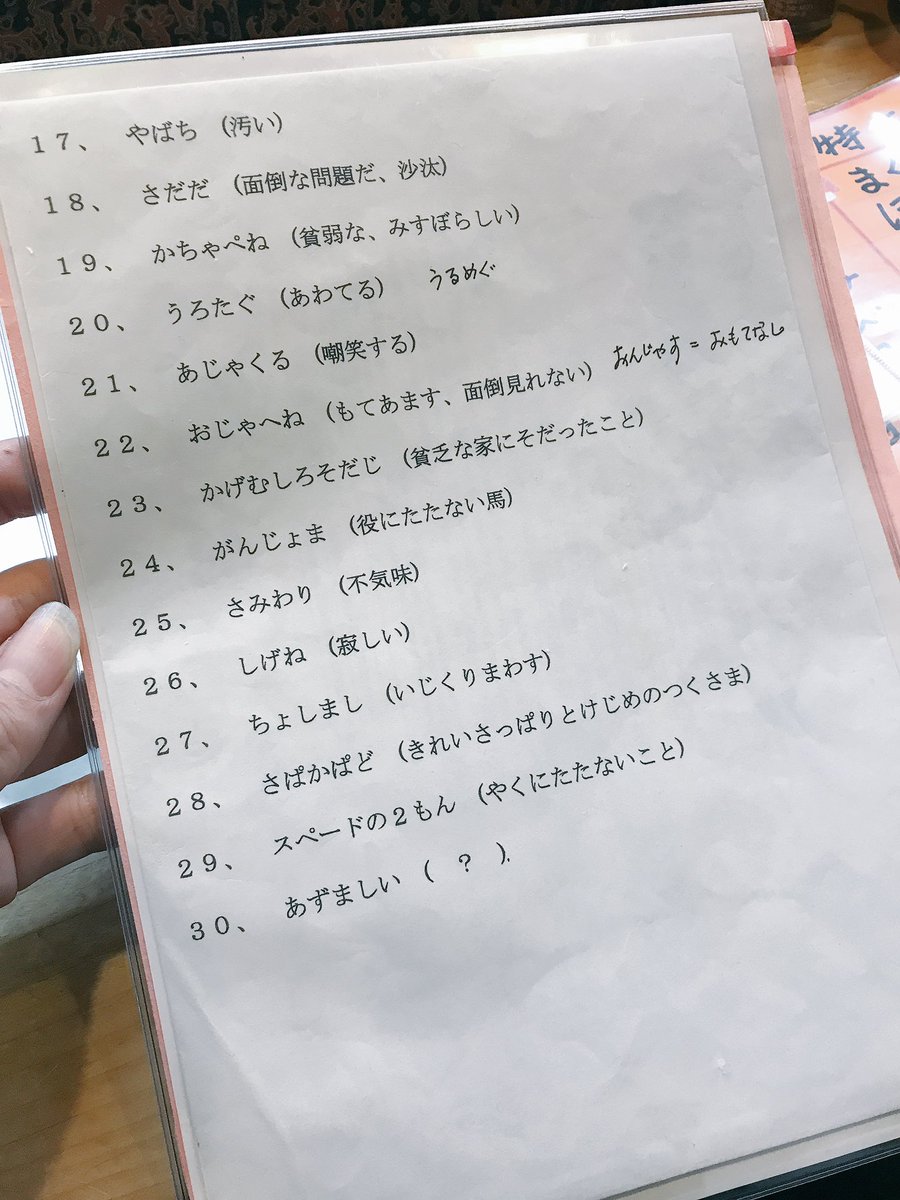 17、 やばち (汚い)
18、 さだだ (面倒な問題だ、沙汰)
19、 かちゃぺね (貧弱な、みすぼらしい)
20、 うろたぐ (あわてる) うるめぐ
21、 あじゃくる (嘲笑する)
22、 おじゃへね (もてあます、面倒見れない) あんじゃす=おもてなし
23、 かげむしろそだじ (貧乏な家にそだったこと)
24、 がんじょま (役にたたない馬)
25、 さみわり (不気味)
26、 しげね (寂しい)
27、 ちょしまし (いじくりまわす)
28、 さぱかぱど (きれいさっぱりとけじめのつくさま)
29、 スペードの2もん (やくにたたないこと)
30、 あずましい ( ? ).
特
まぐ